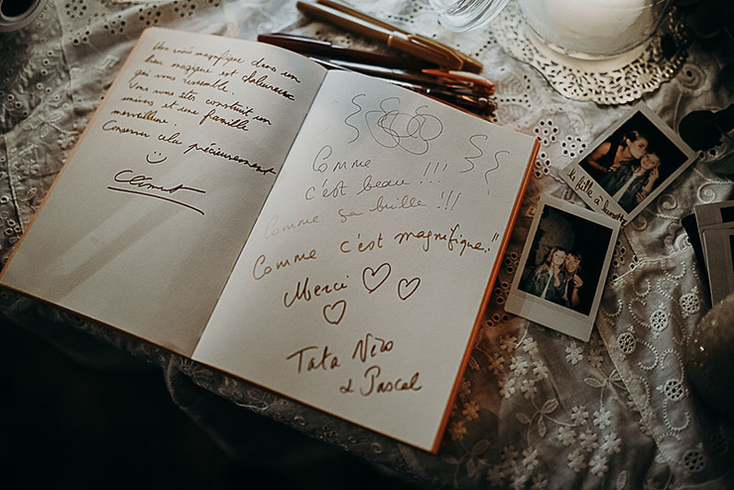 Une soirée magnifique dans un
lieu magique et chaleureux
qui vous ressemble.
Vous vous êtes construit un
univers et une famille
merveilleuse !
Conservez cela précieusement
Clément
Comme
c'est beau !!!
Comme ça brille !!!
Comme c'est magnifique !!
Merci
Tata Niro
& Pascal
la fille à lunettes